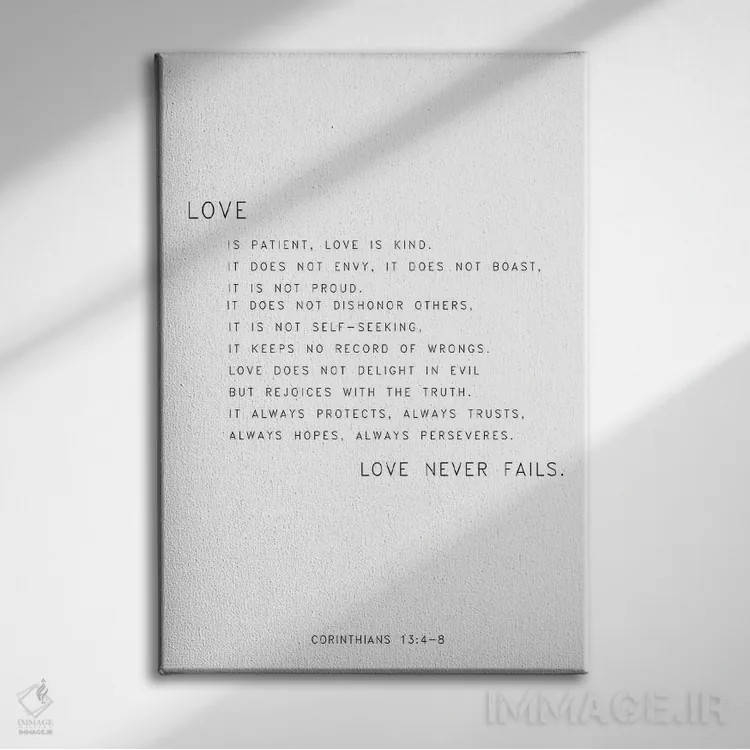 LOVE
IS PATIENT, LOVE IS KIND.
IT DOES NOT ENVY, IT DOES NOT BOAST,
IT IS NOT PROUD.
IT DOES NOT DISHONOR OTHERS,
IT IS NOT SELF-SEEKING,
IT KEEPS NO RECORD OF WRONGS.
LOVE DOES NOT DELIGHT IN EVIL
BUT REJOICES WITH THE TRUTH.
IT ALWAYS PROTECTS, ALWAYS TRUSTS,
ALWAYS HOPES, ALWAYS PERSEVERES.
LOVE NEVER FAILS.
CORINTHIANS 13:4-8
IMMAGE
IMMAGE.IR
IMMAGE.IR